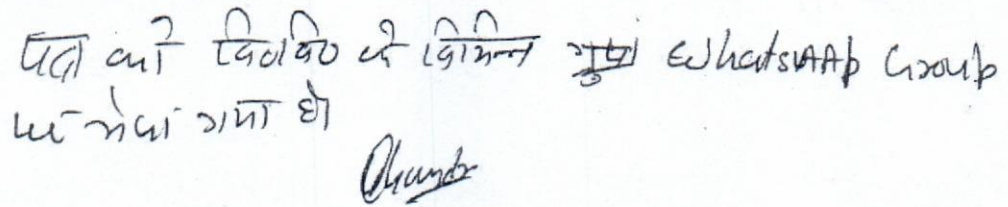 पत्र को विoविo के विभिन्न ग्रुप WhatsAAp Group
पर भेजा गया है।